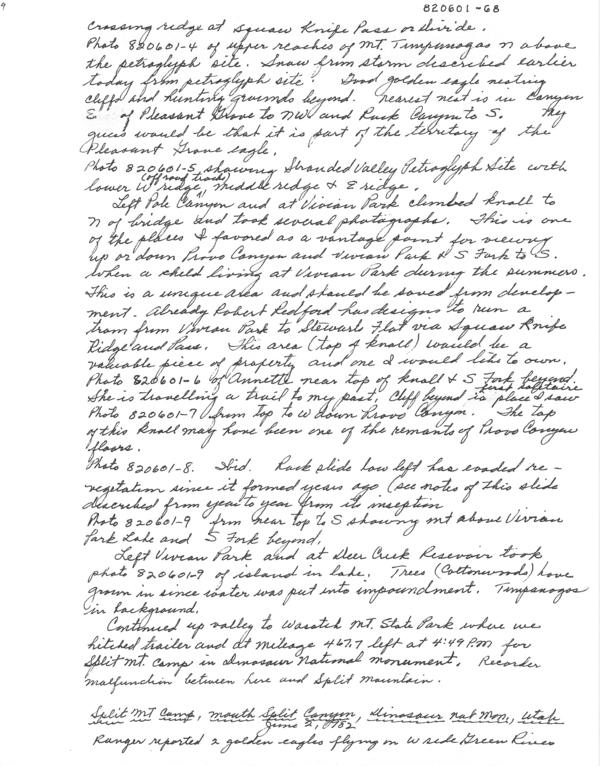 9
820601-68
crossing ridge at Squaw Knife Pass or divide.
Photo 820601-4 of upper reaches of Mt. Timpanogas N above
the petroglyph site. Snow from storm described earlier
today from petroglyph site. Good golden eagle nesting
cliffs and hunting grounds beyond. Nearest nest is in Canyon
E of Pleasant Grove to NW and Rock Canyon to S. My
guess would be that it is part of the territory of the
Pleasant Grove eagle.
Photo 820601-5 showing Stranded Valley Petroglyph Site with
lower W ridge (off road track), middle ridge & E ridge.
Left Pole Canyon and at Vivian Park climbed knall to
N of bridge and took several photographs. This is one
of the places I favored as a vantage point for viewing
up or down Provo Canyon and Vivian Park & S Fork to S.
when a child living at Vivian Park during the summers.
This is a unique area and should be saved from develop-
ment. Already Robert Redford has designs to run a
tram from Vivian Park to Stewarts Flat via Squaw Knife
Ridge and Pass. This area (top of knall) would be a
valuable piece of property and one I would like to own.
Photo 820601-6 of Annette near top of knall & S Fork beyond.
She is travelling a trail to my past. Cliff beyond is place I saw first solitaire
Photo 820601-7 from top to W down Provo Canyon. The top
of this knall may have been one of the remants of Provo Canyon
floors.
Photo 820601-8. Ibid. Rock slide low left has evaded re-
vegetation since it formed years ago (see notes of this slide
described from year to year from its inseption
Photo 820601-9 frm near top to S showing mt above Vivian
Park Lake and S Fork beyond.
Left Vivian Park and at Deer Creek Resevoir took
photo 820601-9 of island in lake. Trees (Cottonwoods) have
grown in since water was put into impoundment. Timpanogos
in background.
Continued up valley to Wasatch Mt. State Park where we
hitched trailer and at mileage 467.7 left at 4:49 PM for
Split Mt. Camp in Dinosaur National Monument. Recorder
malfunction between here and Split Mountain.
Split Mt Camp, mouth Split Canyon, Dinosaur Nat Mon., Utah
June 2, 1982
Ranger reported 2 golden eagles flying on W side Green River